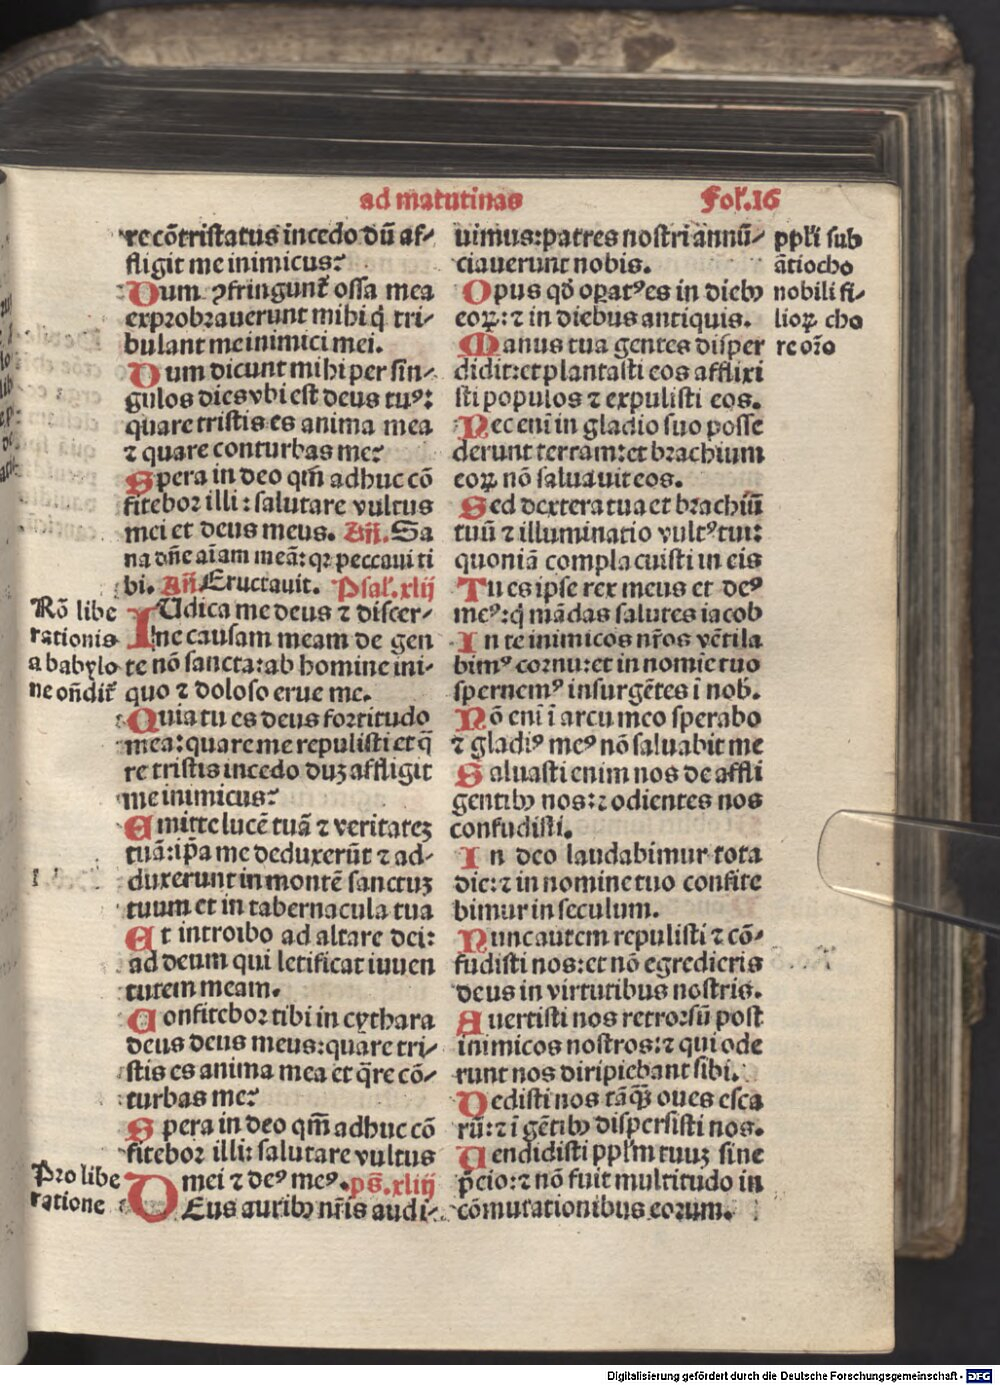 ad matutinas
Folꝰ.16
re cõtristatus incedo dũ af-
fligit me inimicus?
Dum ꝯfringunt᷑ ossa mea
exprobrauerunt mihi q̇ tri-
bulant me inimici mei.
Dum dicunt mihi per sin-
gulos dies vbi est deus tuꝰ:
quare tristis es anima mea
⁊ quare conturbas me?
Spera in deo qm̃ adhuc cõ
fitebor illi: salutare vultus
mei et deus meus. Añ. Sa
na dñe aĩam meã: qꝛ peccaui ti
bi. Añ. Eructauit. Psal.xlij
IUdica me deus ⁊ discer-
ne causam meam de gen
te nõ sancta: ab homine ini-
quo ⁊ doloso erue me.
Quia tu es deus fortitudo
mea: quare me repulisti et q̃
re tristis incedo duꝫ affligit
me inimicus?
Emitte lucẽ tuã ⁊ veritateꝫ
tuã: ip̃a me deduxerũt ⁊ ad-
duxerunt in montẽ sanctuꝫ
tuum et in tabernacula tua
Et introibo ad altare dei:
ad deum qui letificat iuuen
tutem meam.
Confitebor tibi in cythara
deus deus meus: quare tri-
stis es anima mea et q̃re cõ-
turbas me?
Spera in deo qm̃ adhuc cõ
fitebor illi: salutare vultus
mei ⁊ deꝰ meꝰ. ps̃.xliij
DEus auribꝫ nr̃is audi-
Rõ libe
rationis
a babylo
ne oñdit᷑
Pro libe
ratione
uimus: patres nostri annũ-
ciauerunt nobis.
Opus qď oꝑatꝰ es in diebꝫ
eoꝝ: ⁊ in diebus antiquis.
Manus tua gentes disper
didit: et plantasti eos afflixi
sti populos ⁊ expulisti eos.
Nec eni in gladio suo posse
derunt terram: et brachium
eoꝝ nõ saluauit eos.
Sed dextera tua et brachiũ
tuũ ⁊ illuminatio vultꝰ tui:
quoniã complacuisti in eis
Tu es ipse rex meus et deꝰ
meꝰ: q̇ mãdas salutes iacob
In te inimicos nr̃os vẽtila
bimꝰ cornu: et in nomĩe tuo
spernemꝰ insurgẽtes ĩ nob̃.
Nõ eni ĩ arcu meo sperabo
⁊ gladiꝰ meꝰ nõ saluabit me
Saluasti enim nos de affli
gentibꝫ nos: ⁊ odientes nos
confudisti.
In deo laudabimur tota
die: ⁊ in nomine tuo confite
bimur in seculum.
Nunc autem repulisti ⁊ cõ-
fudisti nos: et nõ egredieris
deus in virtutibus nostris.
Auertisti nos retrorsũ post
inimicos nostros: ⁊ qui ode
runt nos diripiebant sibi.
Dedisti nos tãqꝫ̃ oues esca
rũ: ⁊ ĩ gẽtibꝫ dispersisti nos.
Uendidisti ppl̃m tuuꝫ sine
p̃cio: ⁊ nõ fuit multitudo in
cõmutationibus eorum.
ppl̃i sub
ãtiocho
nobili fi-
lioꝝ cho
re or̃o
Digitalisierung gefördert durch die Deutsche Forschungsgemeinschaft - DFG